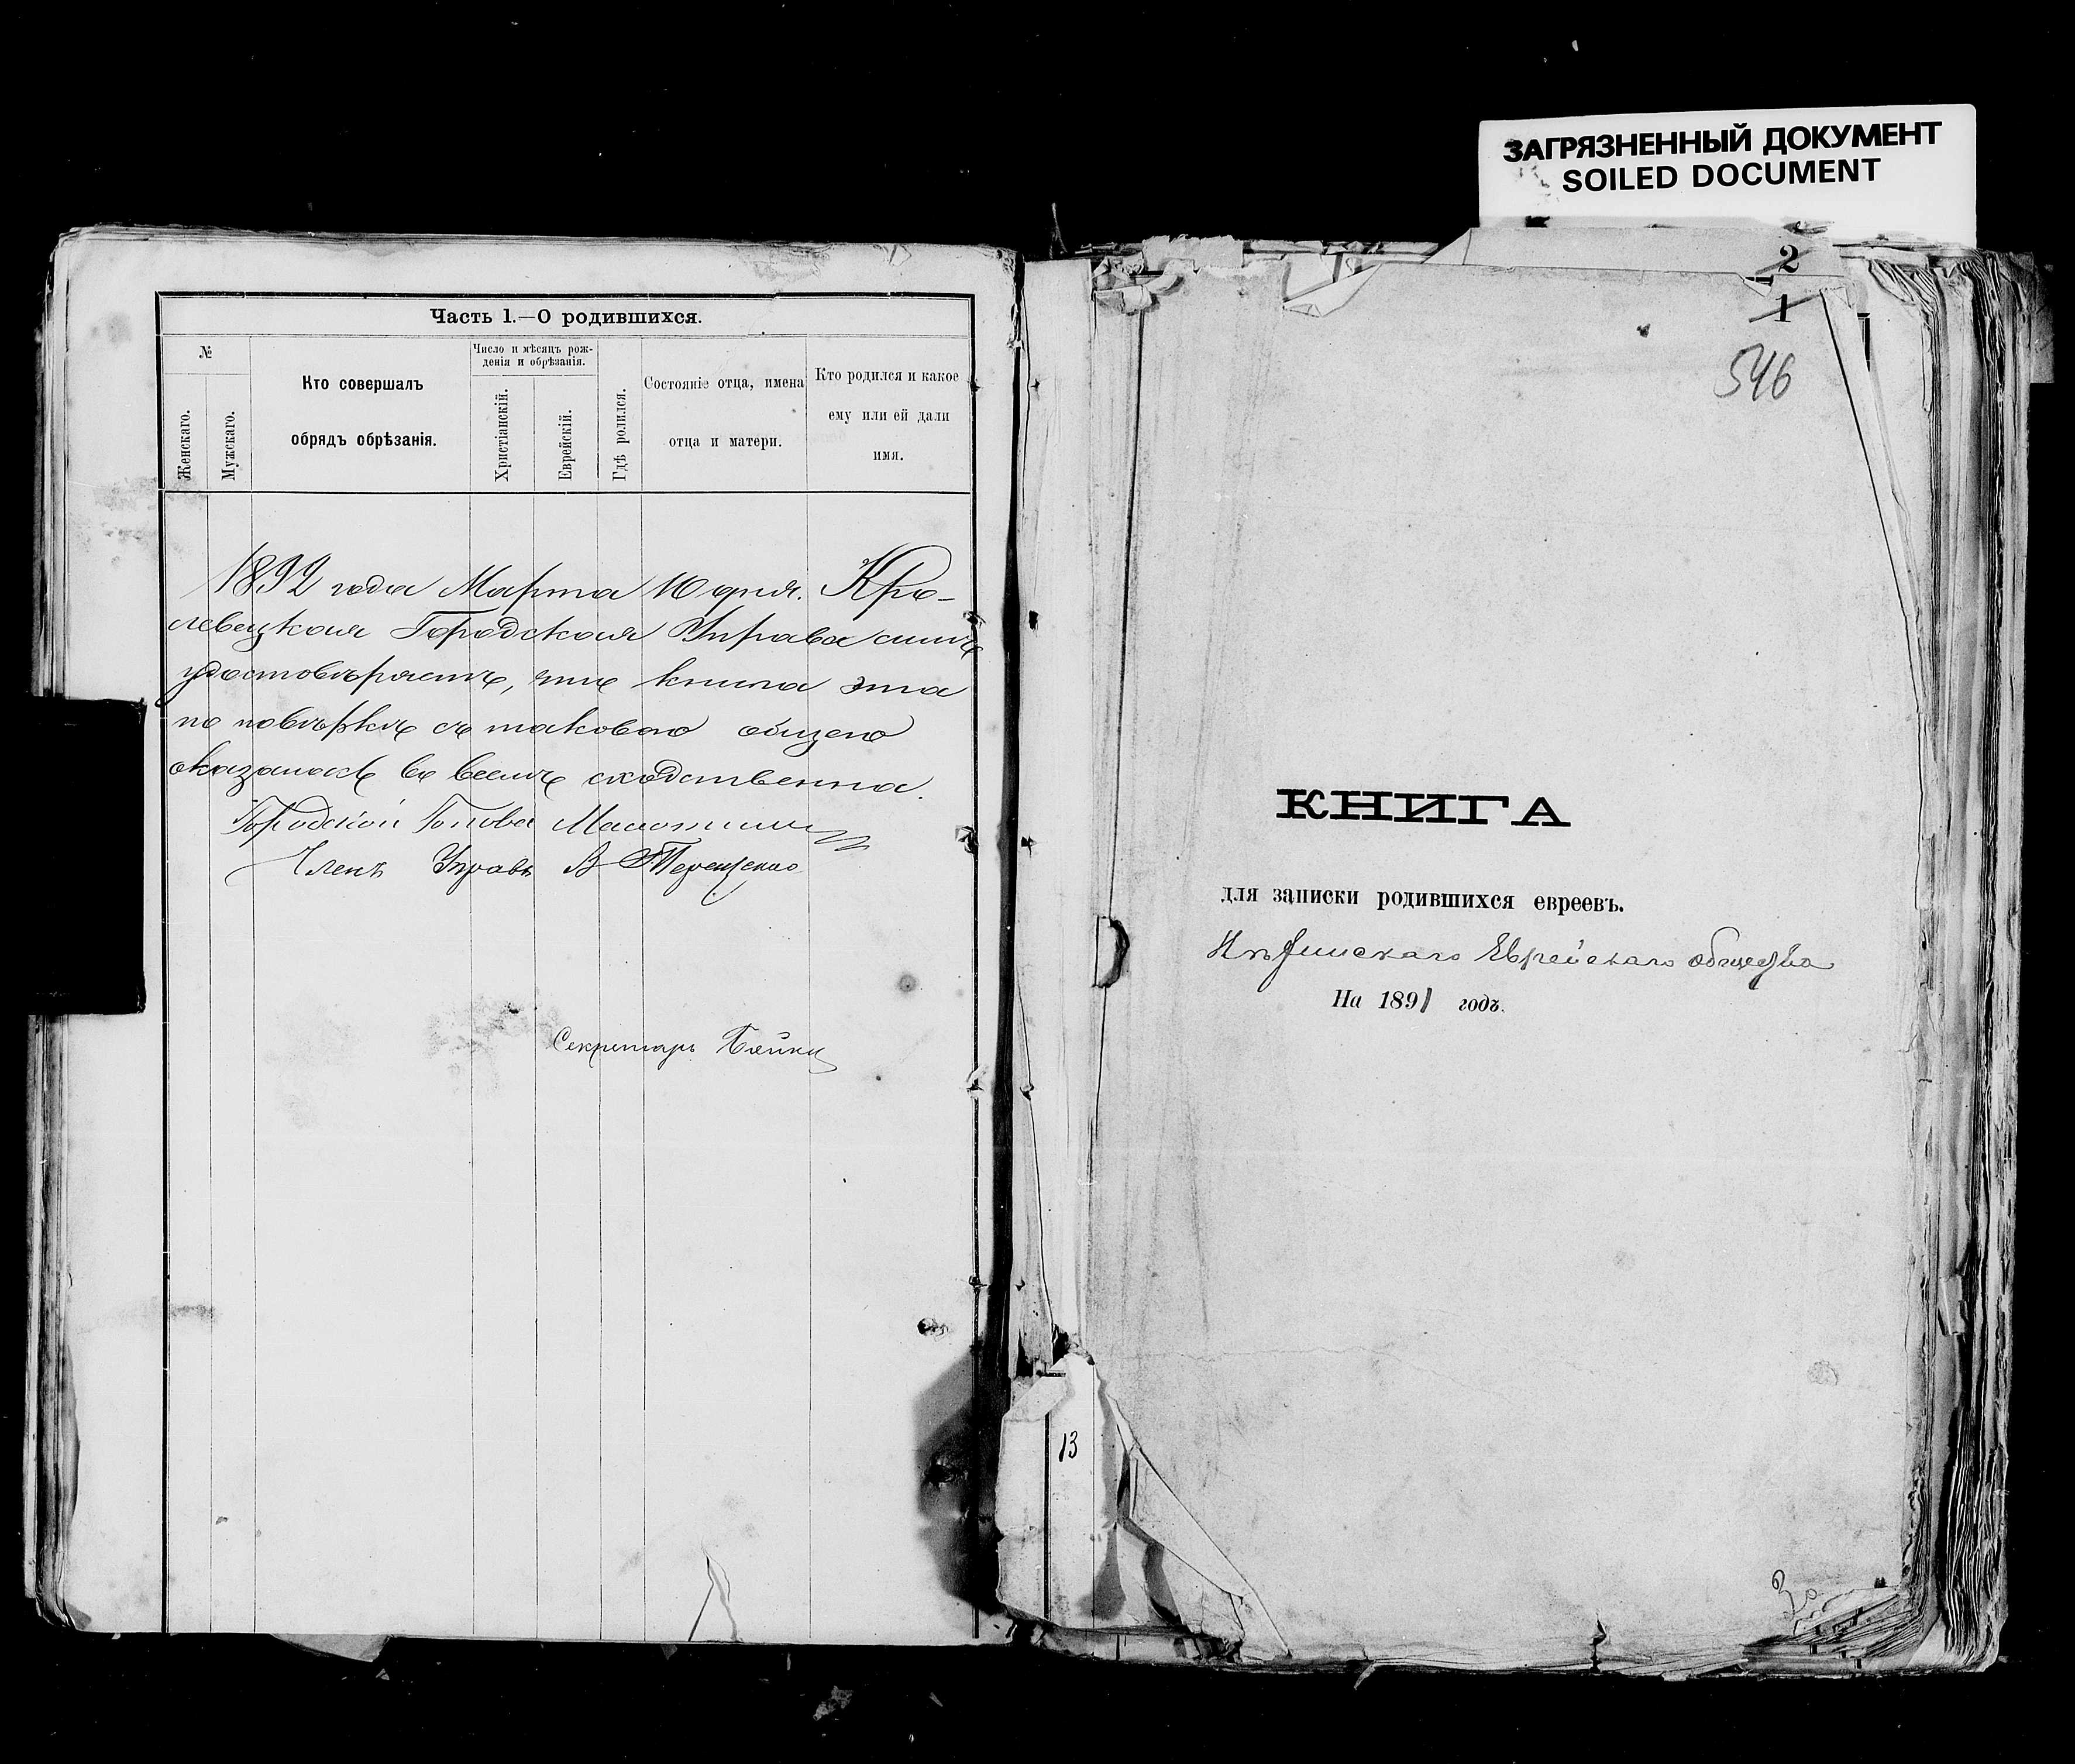 ЗАГРЯЗНЕННЫЙ ДОКУМЕНТ
SOILED DOCUMENT
Часть 1.—О родившихся.
№
Женскаго.
Мужскаго.
Кто совершалъ
обрядъ обрѣзанія.
Число и мѣсяцъ рож-
денія и обрѣзанія.
Христіанскій.
Еврейскій.
Гдѣ родился.
Состояніе отца, имена
отца и матери.
Кто родился и какое
ему или ей дали
имя.
1892 года Марта 10 дня. Кро-
левецкая Городская Управа симъ
удостовѣряетъ, что книга эта
по повѣркѣ съ таковою общею
оказалась во всемъ сходственна.
Городской Голова
Членъ Управы В Терещенко
Секретарь
2
1
546
КНИГА
для записки родившихся евреевъ.
Нѣжинскаго Еврейскаго общества
На 1891 годъ.
13
30